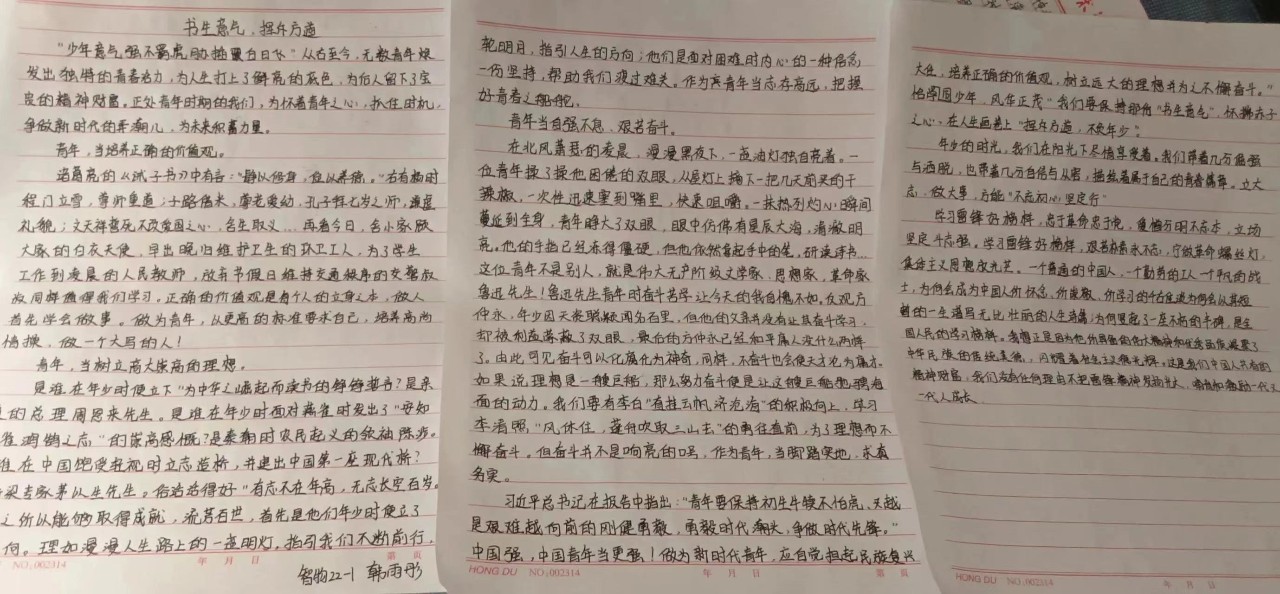 书生意气，挥斥方遒
"少年意气强不羁，虎胁插翼白日飞"从古至今，无数青年焕
发出独特的青春活力，为人生打上了鲜亮的底色，为后人留下了宝
贵的精神财富。正处青年时期的我们，为怀着青年之心，抓住时机，
争做新时代的弄潮儿，为未来积蓄力量。
青年，当培养正确的价值观。
诸葛亮的《诫子书》中有言："静以修身，俭以养德。"古有杨时
程门立雪，尊师重道；子路借米，尊老爱幼，孔子拜七岁之师，谦虚
礼貌；文天祥誓死不改爱国之心，舍生取义…再看今日，舍小家顾
大家的白衣天使，早出晚归维护卫生的环卫工人，为了学生
工作到凌晨的人民教师，放弃节假日维持交通秩序的交警叔
叔同样值得我们学习。正确的价值观是每个人的立身之本，做人
首先学会做事。做为青年，以更高的标准要求自己，培养高尚
情操，做一个大写的人！
青年，当树立高大崇高的理想。
是谁在年少时便立下"为中华之崛起而读书的铮铮誓书？是亲
的总理周恩来先生。是谁在年少时面对燕雀时发出了"安如
雀鸿鹄之志"的崇高感慨？是秦朝时农民起义的领袖陈涉。
谁在中国饱受轻视时立志造桥，并建出中国第一座现代桥？
梁专家茅以生先生。俗话说得好"有志不在年高，无志长空百岁。
之所以能够取得成就，流芳百世，首先是他们年少时便立了
向。理如漫漫人生路上的一盏明灯，指引我们不断前行，
年 月 日 第 页
NO:002314
智物22-1 韩雨彤
轮明月，指引人生的方向；他们是面对困难时内心的一种信念
一份坚持，帮助我们渡过难关。作为青年当志存高远，把握
好青春之船舵。
青年当自强不息，艰苦奋斗。
在北风萧瑟的凌晨，漫漫黑夜下，一盏油灯独自亮着。一
位青年揉了揉他困倦的双眼，从屋灯上摘下一把几天前买的干
辣椒，一次性迅速塞到嘴里，快束咀嚼。一抹热烈灼心瞬间
蔓延到全身，青年睁大了双眼，眼中仿佛有星辰大海，清澈明
亮。他的手指已经冻得僵硬，但他依然拿起手中的笔，研读诗书…
这位青年不是别人，就是伟大无产阶级文学家、思想家，革命家
鲁迅先生！鲁迅先生青年时奋斗苦学让今天的我自愧不如。反观方
仲永，年少因天资聪颖闻名百里，但他的父亲并没有让其奋斗学习，
却被利益蒙蔽了双眼，最后的方仲永已经和平庸人没什么两样
了。由此可见奋斗可以化腐化为神奇，同样，不奋斗也会使天才沦为庸才。
如果说理想是一艘巨船，那么努力奋斗便是让这艘巨船驰骋海
面的动力。我们要有李白"直挂云帆济沧海"的积极向上，学习
李清照，"风休住，蓬舟吹取三山去"的勇往直前，为了理想而不
懈奋斗。但奋斗并不是响亮的口号，作为青年，当脚踏实地，求真
务实。
习近平总书记在报告中指出："青年要保持初生牛犊不怕虎，越
是艰难越向前的刚健勇毅，勇毅时代潮头，争做时代先锋。"
中国强，中国青年当更强！做为新时代青年，应自觉担起民族复兴
HONG DU NO:002314 年 月 日 第 页
大任，培养正确的价值观，树立远大的理想并为之不懈奋斗。"
恰同学少年，风华正茂"我们要保持那份"书生意气"，怀揣赤子
之心，在人生画卷上"挥斥方遒，不负年少"。
年少的时光，我们在阳光下尽情享受着。我们带着几分倔强
与洒脱，也带着几分自信与从容，描绘着属于自己的青春篇章。立大
志，做大事，方能"不忘初心坚定行"
学习雷锋好榜样，忠于革命忠于党，爱憎分明不忘本，立场
坚定斗志强。学习雷锋好榜样，艰苦朴素永不忘，作做革命螺丝灯，
集体主义思想放光芒。一个普通的中国人，一个勤劳的工人一个平凡的战
士，为何会成为中国人所怀念，所敬爱，所学习的千古
国人民的学习榜样。
HONG DU NO:002314 年 月 日